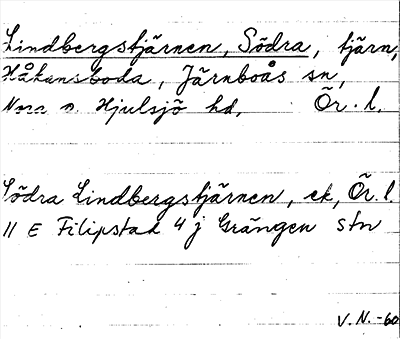 Lindbergstjärnen, Södra, tjärn,
Håkansboda, Järnboås sn,
Nora o. Hjulsjö hd, Ör. l.
Södra Lindbergstjärnen, ek, Ör. l.
11 E Filipstad 4 j Grängen stn
V. N. -60